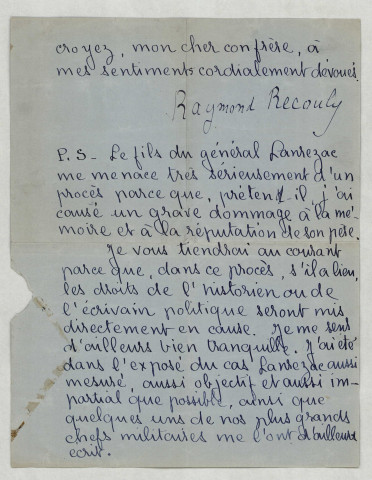 croyez, mon cher confrère, à
mes sentiments cordialement dévoués.
Raymond Recouly
P.S - Le fils du général Lanrezac
me menace très sérieusement d'un
procès parce que, prétend-il, j'ai
causé un grave dommage à la mé-
moire et à la réputation de son père.
Je vous tiendrai au courant
parce que, dans ce procès, s'il a lieu,
les droits de l'historien ou de
l'écrivain politique seront mis
directement en cause. Je me sens
d'ailleurs bien tranquille. J'ai été
dans l'exposé du cas Lanrezac aussi
mesuré, aussi objectif et aussi im-
partial que possible, ainsi que
quelques uns de nos plus grands
chefs militaires me l'ont d'ailleurs
écrit.